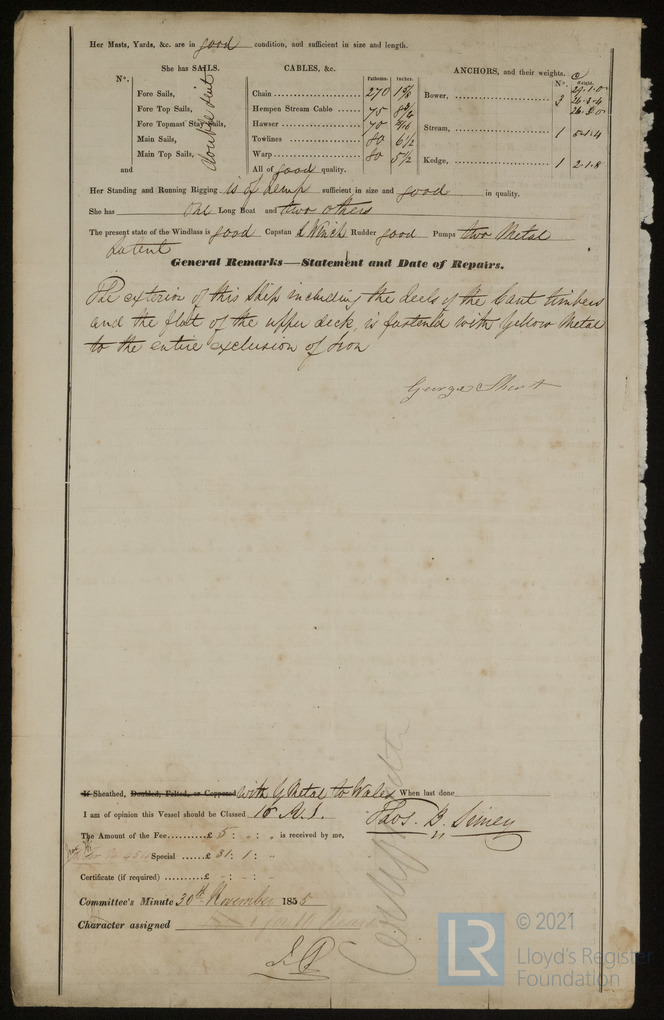 Her Masts, Yards, &c. are in good condition, and sufficient in size and length.
She has SAILS.
N°.
Fore Sails,
Fore Top Sails,
Fore Topmast Stay Sails,
Main Sails,
Main Top Sails,
and
double suit
CABLES, &c.
Fathoms. Inches.
Chain 270
Hempen Stream Cable 75
Hawser 70
Towlines 80 6½
Warp 80 5½
All of good quality.
ANCHORS, and their weights.
N°. Weight.
Bower, 3 29.1.0
26.3.4
26.3.0
Stream, 1
Kedge, 1 2.1.8
Her Standing and Running Rigging is of hemp sufficient in size and good in quality.
She has One Long Boat and two others
The present state of the Windlass is good Capstan & Winch Rudder good Pumps two Metal
Patent
General Remarks—Statement and Date of Repairs.
The exterior of this Ship including the heels of the Cant timbers
and the flat of the upper deck, is fastened with Yellow Metal
to the entire exclusion of Iron
George Short
If Sheathed, Doubled, Felted, or Coppered with Y Metal to Wales When last done
I am of opinion this Vessel should be Classed 10 A.1.
Thos. B. Simey
The Amount of the Fee £ 5 : - : - is received by me,
Special £ 31 : 1 : -
Certificate (if required) £ - : - : -
Committee's Minute 30th November 1855
Character assigned
© 2021
LR
Lloyd's Register
Foundation